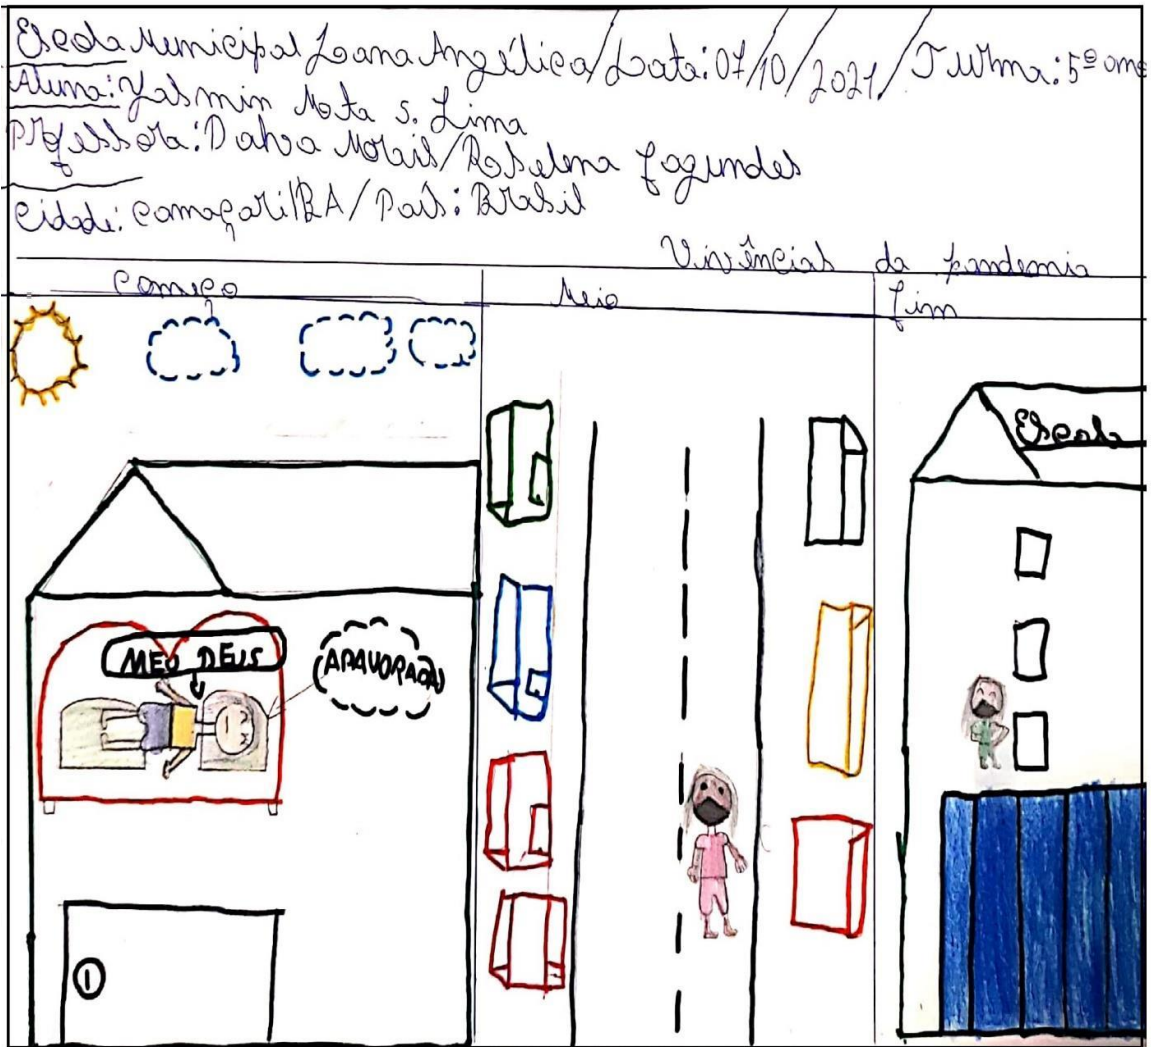 Escola Municipal Joana Angélica/Data: 07/10/2021/Turma: 5º ano
Aluna: Yasmin Mota S. Lima
Professora: Dahra Morais/Roselena Fagundes
Cidade: Camaçari/BA/País: Brasil
Vivências da pandemia
Começo Meio Fim
Escola
MEU DEUS
APAVORADA